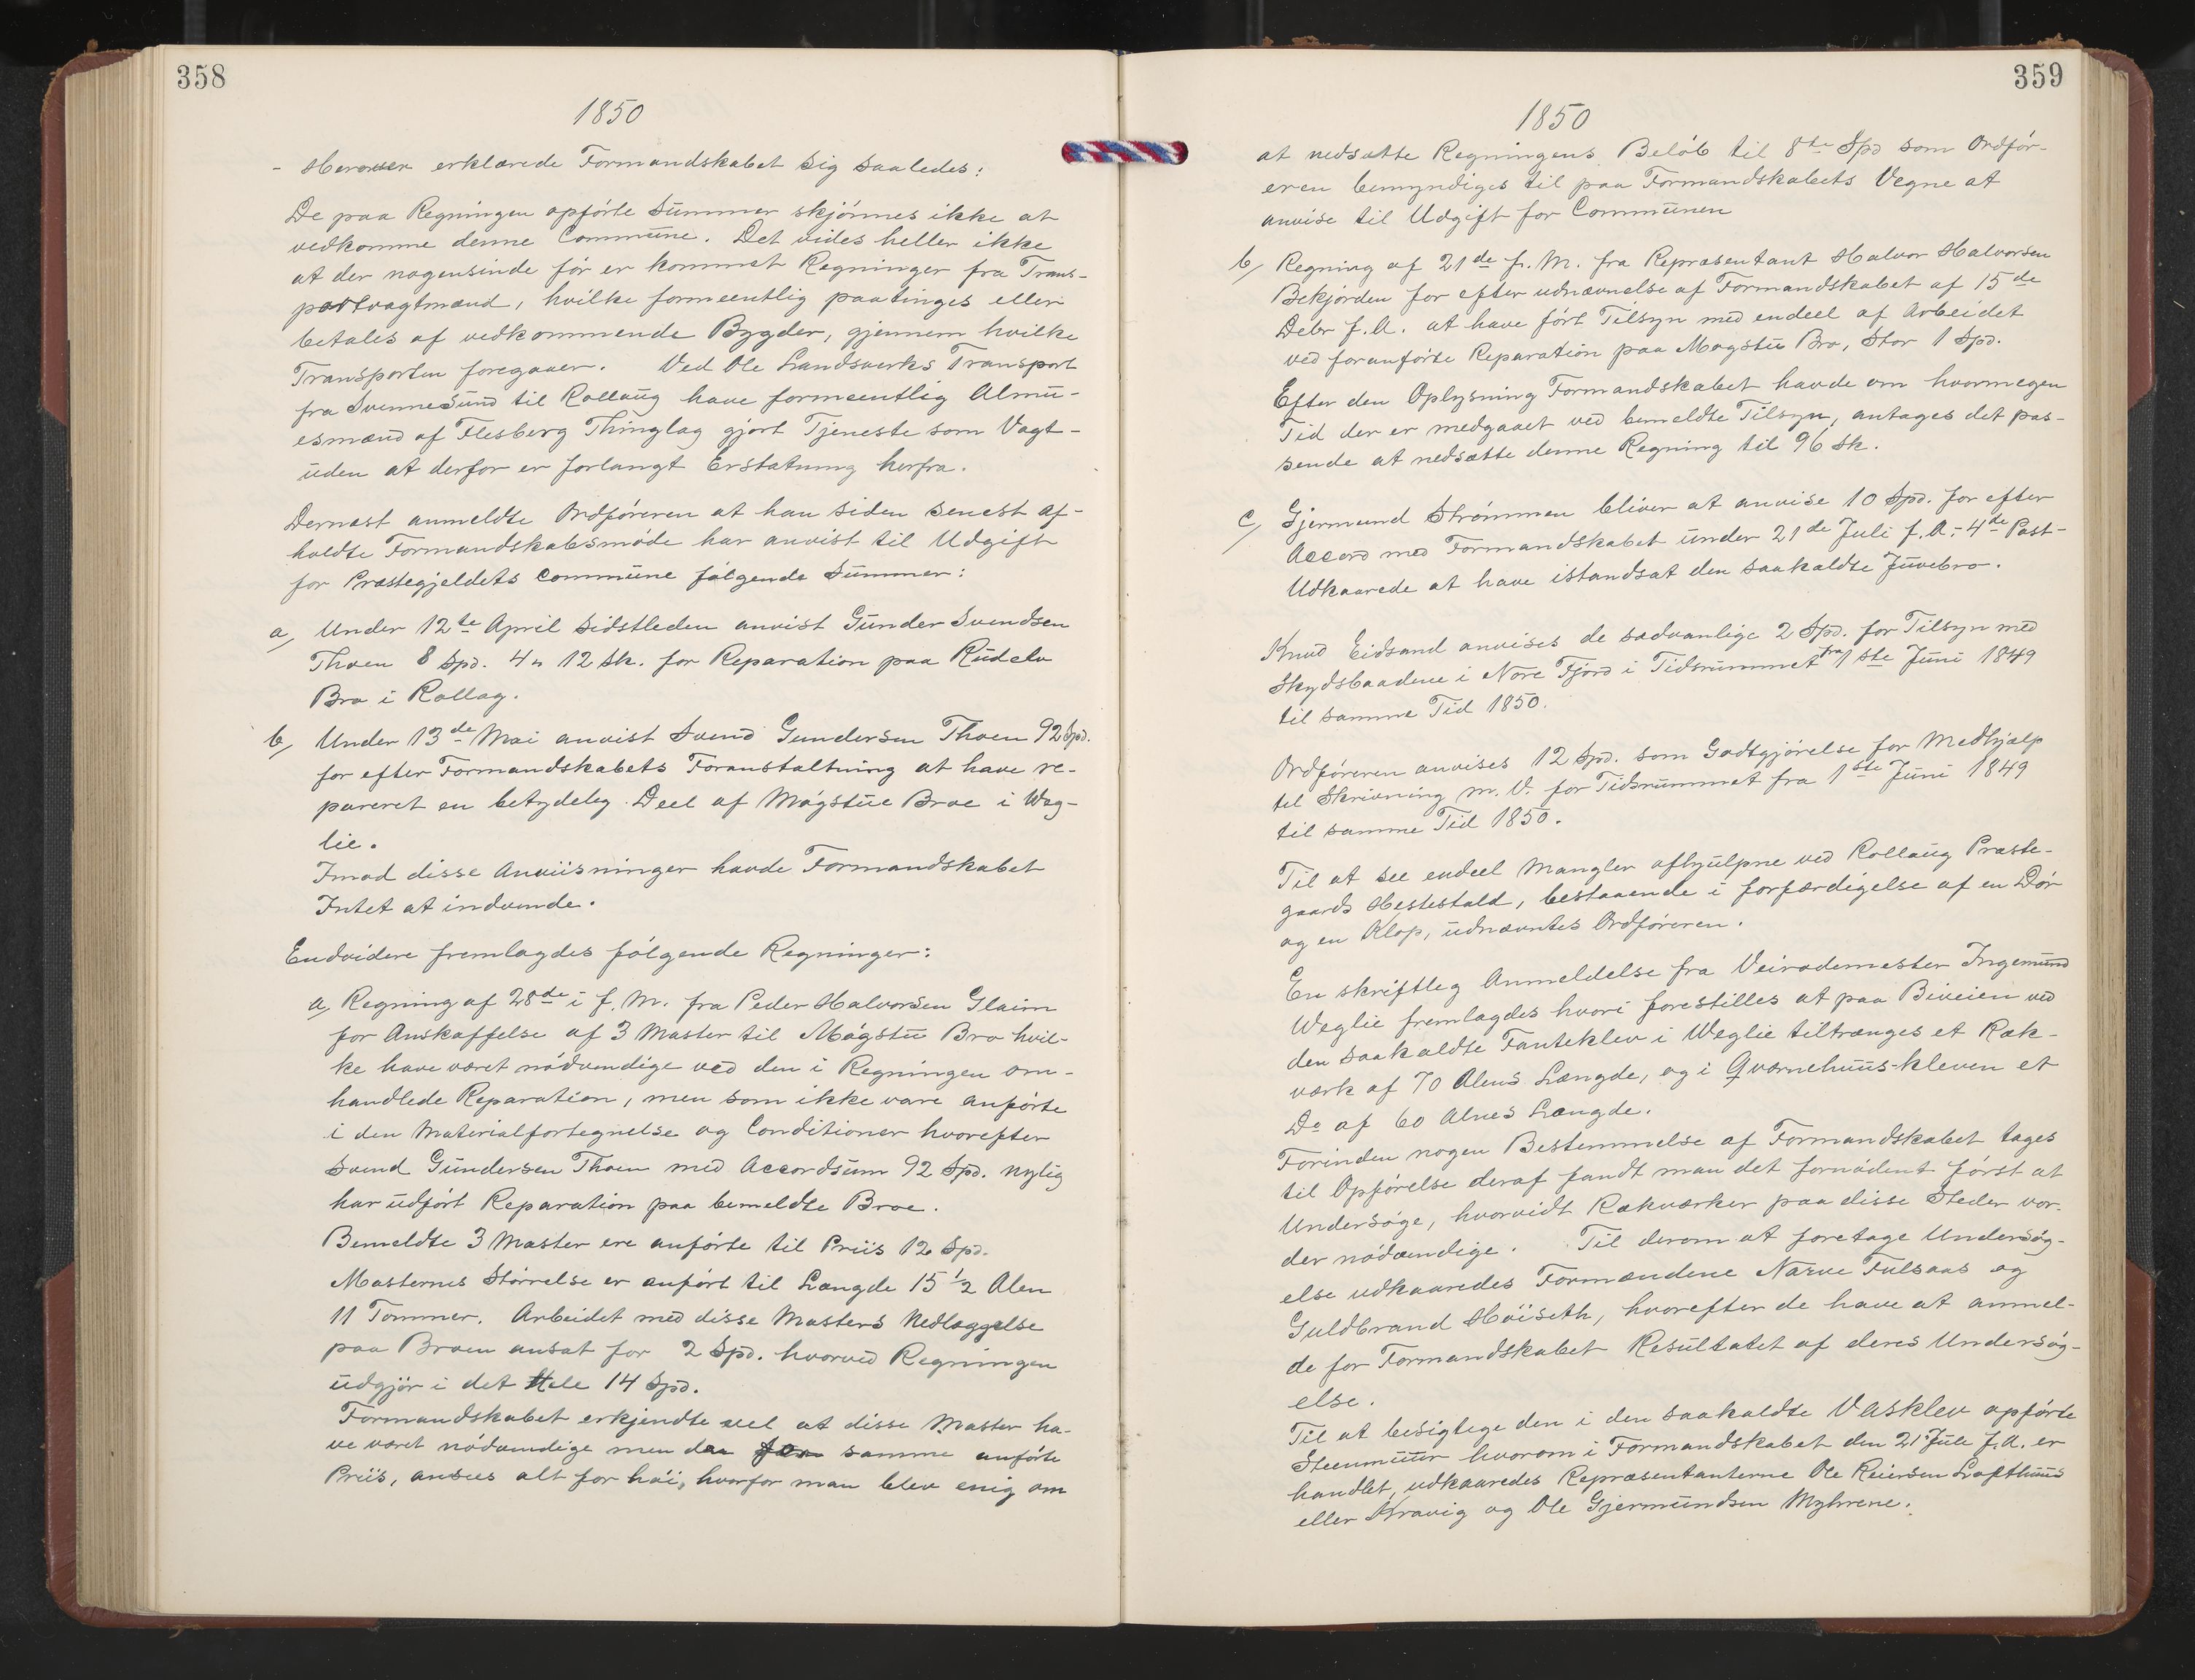 358
1850
- Herover erklærede Formandskabet sig saaledes:
De paa Regningen opførte Summer skjønnes ikke at
vedkomme denne Commune. Det vides heller ikke
at der nogensinde før er kommet Regninger fra Trans-
portvagtmænd, hvilke formeentlig paatinges eller
betales af vedkommende Bygder, gjennem hvilke
Transporten foregaaer. Ved Ole Landsverks Transport
fra Svennesund til Rollaug have formeentlig Almu-
esmænd af Flesberg Thinglag gjort Tjeneste som Vagt-
uden at derfor er forlangt Erstatning herfra.
Dernæst anmeldte Ordføreren at han siden senest af-
holdte Formandskabsmøde har anvist til Udgift
for Præstegjeldets Commune følgende Summer:
a, Under 12te April sidstleden anvist Gunder Svendsen
Thoen 8 Spd. 4 " 12 Sk. for Reparation paa Rudelv
Bro i Rollag.
b, Under 13de Mai anvist Svend Gundersen Thoen 92 Spd.
for efter Formandskabets Foranstaltning at have re-
pareret en betydeleg Deel af Møgstue Broe i Weg-
lie.
Imod disse Anviisninger havde Formandskabet
Intet at indvende.
Endvidere fremlagdes følgende Regninger:
a, Regning af 28de i f. M. fra Peder Halvorsen Glaim
for Anskaffelse af 3 Master til Møgstu Bro hvil-
ke have været nødvendige ved den i Regningen om-
handlede Reparation, men som ikke vare anførte
i den Materialfortegnelse og Conditioner hvorefter
Svend Gundersen Thoen med Accordsum 92 Spd. nylig
har udført Reparation paa bemeldte Broe.
Bemeldte 3 Master ere anførte til Priis 12 Spd.
Masternes Størrelse er anført til Længde 15 1/2 Alen
11 Tommer. Arbeidet med disse Masters Nedlæggelse
paa Broen ansat for 2 Spd. hvorved Regningen
udgjør i det Hele 14 Spd.
Formandskabet erkjendte vel at disse Master ha-
ve været nødvendige men den for samme anførte
Priis, ansees alt for høi, hvorfor man blev enig om
359
1850
at nedsætte Regningens Beløb til 8te Spd som Ordfør-
eren bemyndiges til paa Formandskabets Vegne at
anvise til Udgift for Communen
b, Regning af 21de f. M. fra Repræsentant Halvor Halvorsen
Bekjorden for efter udnævnelse af Formandskabet af 15de
Debr f. A. at have ført Tilsyn med endeel af Arbeidet
ved foranførte Reparation paa Mogstu Bro, Stor 1 Spd.
Efter den Oplysning Formandskabet havde om hvormegen
Tid der er medgaaet ved bemeldte Tilsyn, antages det pas-
sende at nedsætte denne Regning til 96 Sk.
c, Gjermund Strømmen bliver at anvise 10 Spd. for efter
Accord med Formandskabet under 21de Juli f. A. - 4de Post-
Udkaarede at have istandsat den saakaldte Juvebro.
Knud Eidsand anvises de sædvanlige 2 Spd. for Tilsyn med
Skydsbaadene i Nore Fjord i Tidsrummet fra 1ste Juni 1849
til samme Tid 1850.
Ordføreren anvises 12 Spd. som Godtgjørelse for Medhjælp
til Skrivning m. V. for Tidsrummet fra 1ste Juni 1849
til samme Tid 1850.
Til at see endeel Mangler afhjulpne ved Rollaug Præste-
gaards Hestestald, bestaaende i forfærdigelse af en Dør
og en Klop, udnævntes Ordføreren.
En skriftleg Anmeldelse fra Veirodemester Ingemund
Weglie fremlagdes hvori forestilles at paa Biveien ved
den saakaldte Fanteklev i Weglie tiltrænges et Ræk-
værk af 70 Alens Længde, og i Qværnehuus-kleven et
Do af 60 Alnes Længde.
Forinden nogen Bestemmelse af Formandskabet tages
til Opførelse deraf fandt man det fornødent først at
Undersøge, hvorvidt Rækværker paa disse Steder vor-
der nødvendige. Til derom at foretage Undersøg-
else udkaaredes Formændene Narve Fulsaas og
Guldbrand Høiseth, hvorefter de have at anmel-
de for Formandskabet Resultatet af deres Undersøg-
else.
Til at besigtege den i den saakaldte Vasklev opførte
Steenmuur hvorom i Formandskabet den 21 Juli f. A. er
handlet, udkaaredes Repræsentanterne Ole Reiersen Lofthuus
eller Kravig og Ole Gjermundsen Myhrene.